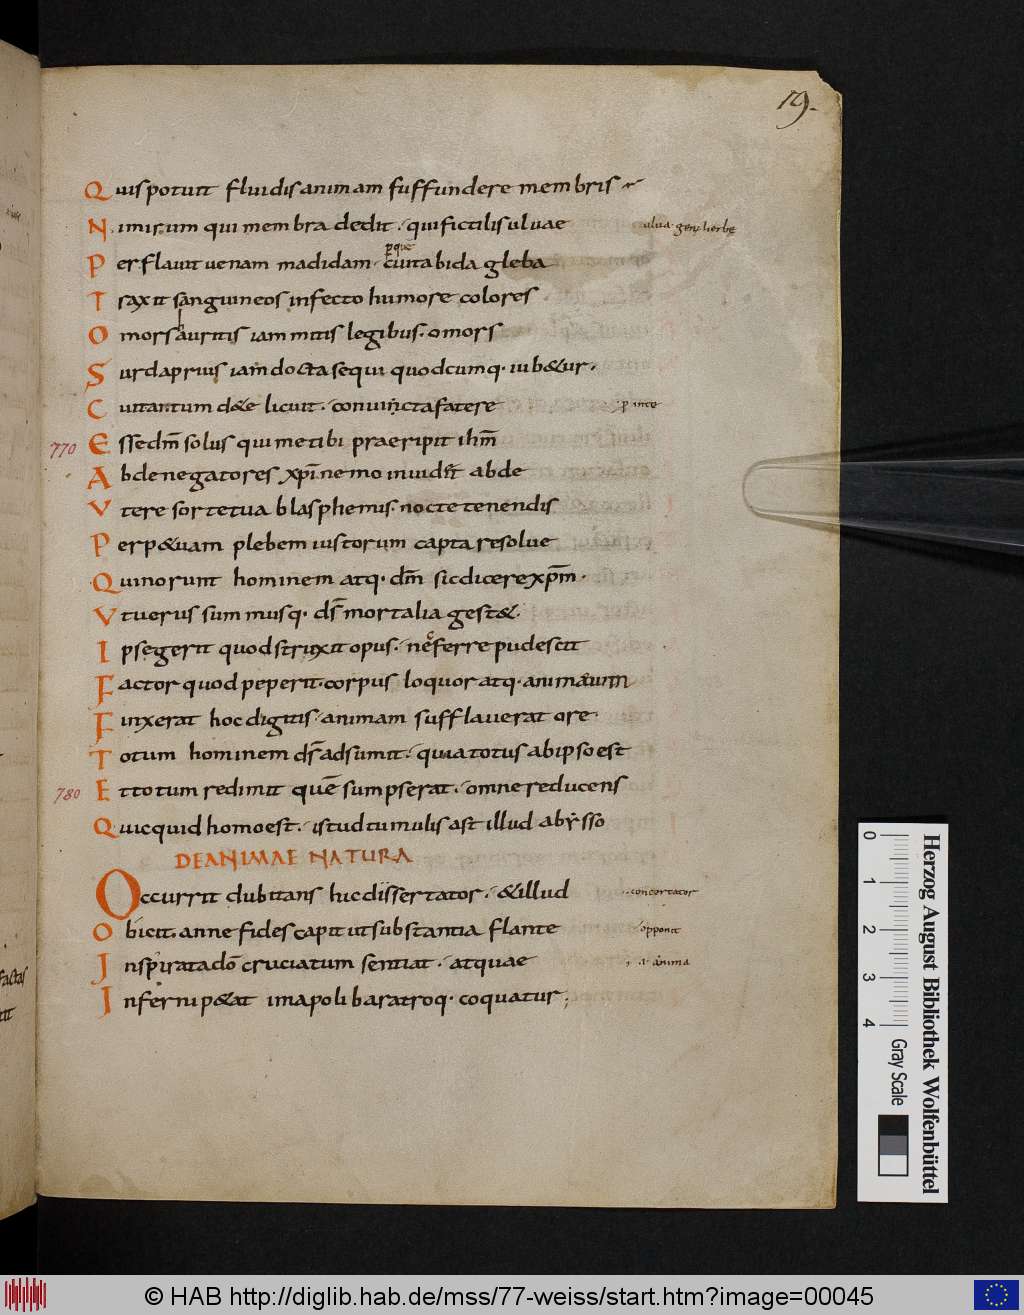 19.
Quis potuit fluidis animam suffundere membris
Nimirum qui membra dedit. qui fictilis ulvae ulva. gen. herbę
Perflavit venam madidam. cui tabida gleba
Traxit sanguineos infecto humore colores
O mors auritis iam mitis legibus. o mors
Surda prius iam docta sequi quodcumq. iub&ur.
Cui tantum d&e licuit. convincta fatere
770 Esse dm̄ solus qui me tibi praeripit ihm̄
Abde negatores xpī nemo invid& abde
Utere sorte tua blasphemis. nocte tenendis
Perp&uam plebem iustorum capta resolve
Qui norunt hominem atq. dm̄ sic dicere xpm̄.
Ut verus summusq. ds̄ mortalia gest&.
Ipse gerit quod struxit opus. ne ferre pudescit
Factor quod peperit. corpus loquor atq. animatum
Finxerat hoc digitis. animam sufflaverat ore.
Totum hominem ds̄ adsumit. quia totus ab ipso est
780 Et totum redimit quē sumpserat. omne reducens
Quicquid homo est. istud tumulis ast illud abẏsso
DE ANIMAE NATURA
Occurrit dubitans hic dissertator. &illud concertator
Obicit. anne fides capit ut substantia flante opponit
Inspirata dō cruciatum sentiat. atquae .a. anima
Inferni p&at imapoli baratroq. coquatur;
Herzog August Bibliothek Wolfenbüttel
0 1 2 3 4 Gray Scale
© HAB http://diglib.hab.de/mss/77-weiss/start.htm?image=00045